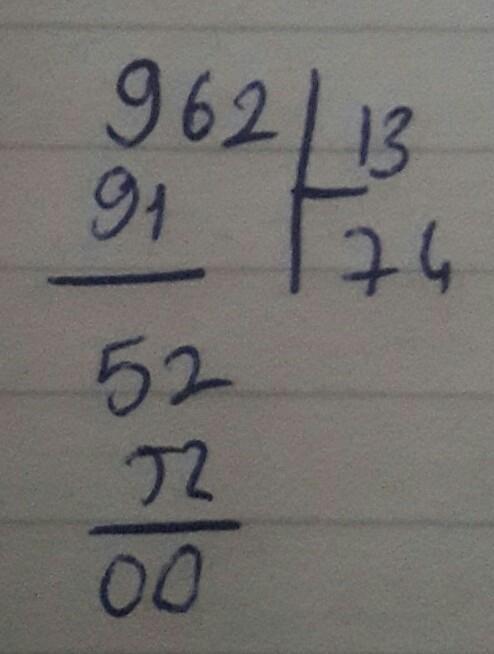 962 13
91 74
52
52
00